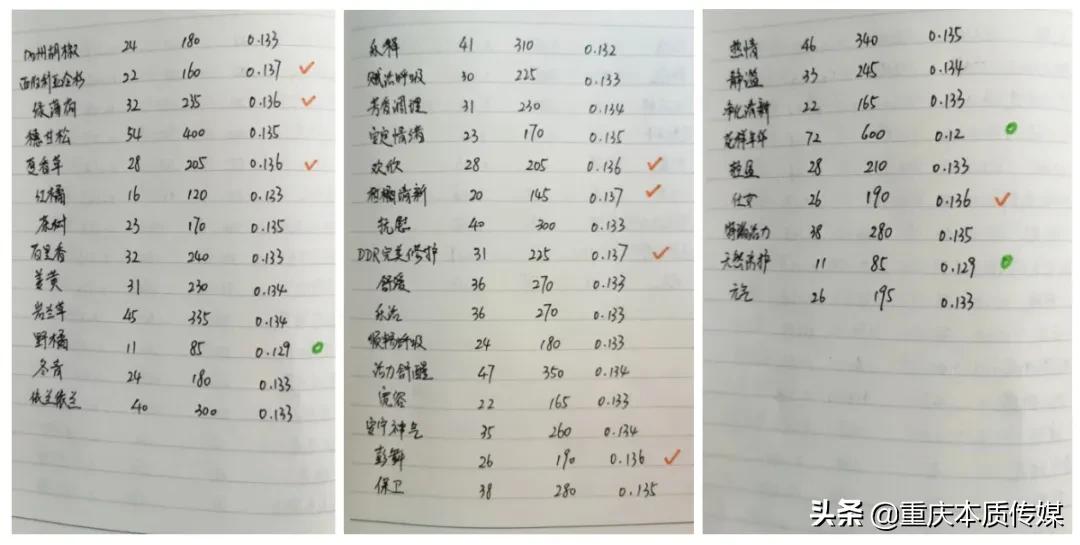 四川胡椒 24 180 0.133
西伯利亚冷杉 22 160 0.137
绿薄荷 32 235 0.136
穗甘松 54 400 0.135
夏香草 28 205 0.136
红橘 16 120 0.133
茶树 23 170 0.135
百里香 32 240 0.133
姜黄 31 230 0.134
岩兰草 45 335 0.134
野橘 11 85 0.129
冬青 24 180 0.133
依兰依兰 40 300 0.133
乐释 41 310 0.132
赋活呼吸 30 225 0.133
芳香调理 31 230 0.134
安定情绪 23 170 0.135
欢欣 28 205 0.136
柑橘清新 20 145 0.137
抚慰 40 300 0.133
DDR完美修护 31 225 0.137
舒缓 36 270 0.133
乐活 36 270 0.133
顺畅呼吸 24 180 0.133
活力舒醒 47 350 0.134
宽容 22 165 0.133
安宁神气 35 260 0.134
26 190 0.136
保卫 38 280 0.135
热情 46 340 0.135
静谧 33 245 0.134
净化清新 22 165 0.133
花样年华 72 600 0.12
轻盈 28 210 0.133
仕女 26 190 0.136
活力 38 280 0.135
天然防护 11 85 0.129
元气 26 195 0.133
头条 @重庆本质传媒